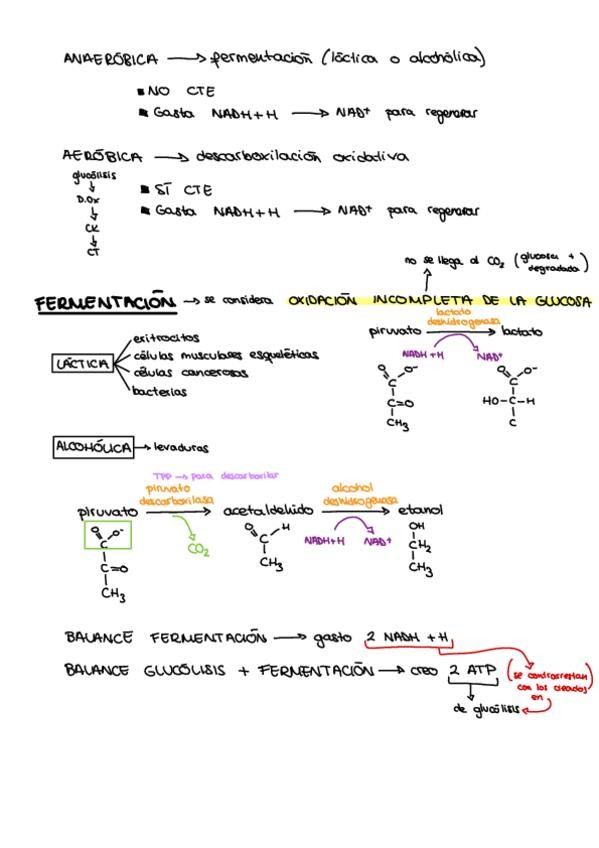 ANAERÓBICA → fermentación (láctica o alcohólica)
▪ NO CTE
▪ Gasta NADH+H → NAD+ para regenerar
AERÓBICA → descarboxilación oxidativa
glucólisis
↓
D.Ox
↓
CK
↓
CT
▪ SÍ CTE
▪ Gasta NADH+H → NAD+ para regenerar
no se llega al CO2 (glucosa + degradada)
FERMENTACIÓN → se considera OXIDACIÓN INCOMPLETA DE LA GLUCOSA
LÁCTICA
eritrocitos
células musculares esqueléticas
células cancerosas
bacterias
lactato
deshidrogenasa
piruvato → lactato
NADH+H NAD+
O O-
C
C=O
CH3
O O-
C
HO-C-H
C
ALCOHÓLICA → levaduras
TPP → para descarboxilar
piruvato
descarboxilasa
alcohol
deshidrogenasa
piruvato → acetaldehido → etanol
CO2
NADH+H NAD+
O O-
C
C=O
CH3
O H
C
CH3
OH
CH2
CH3
BALANCE FERMENTACIÓN → gasto 2 NADH+H
BALANCE GLUCÓLISIS + FERMENTACIÓN → creo 2 ATP
(se contrarrestan
con los creados)
en
de glucólisis